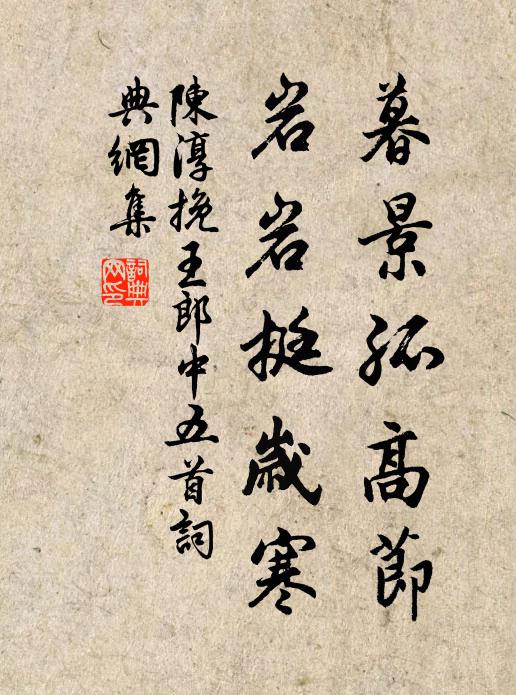 暮景孤高節
岩岩挺歲寒
陳淳挽王郎中五首詞
典網集
詞典網印